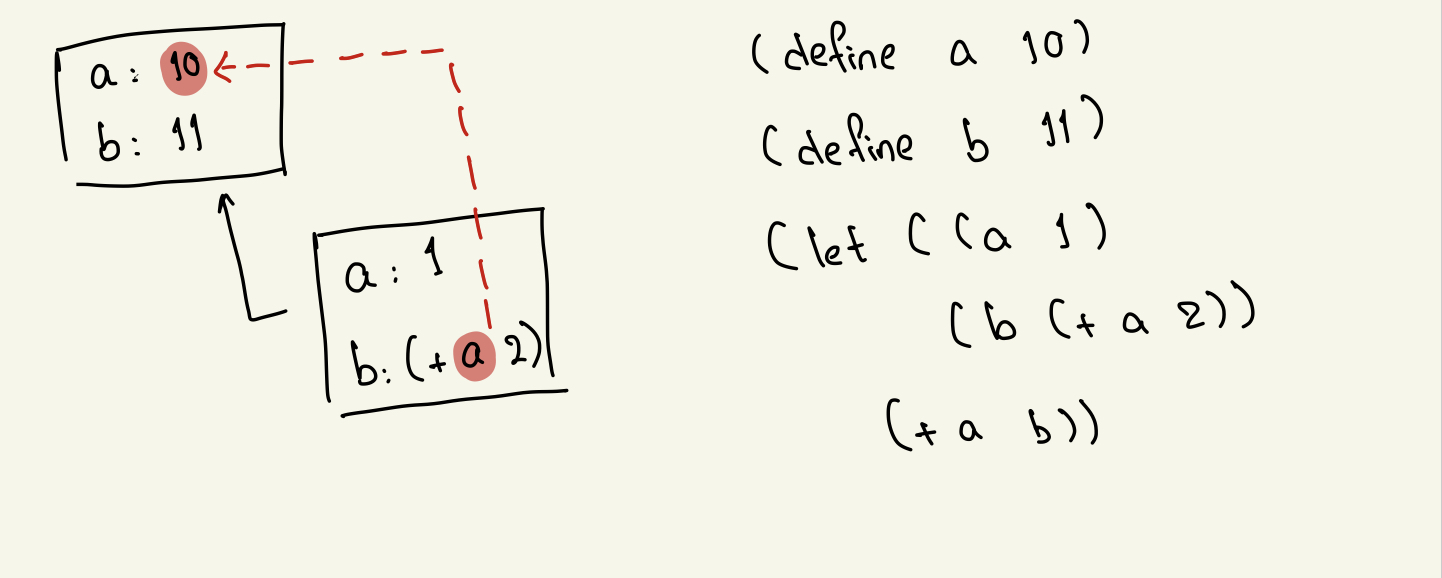 a: 10
b: 11
a: 1
b: (+ a 2)
(define a 10)
(define b 11)
(let ((a 1)
(b (+ a 2))
(+ a b))